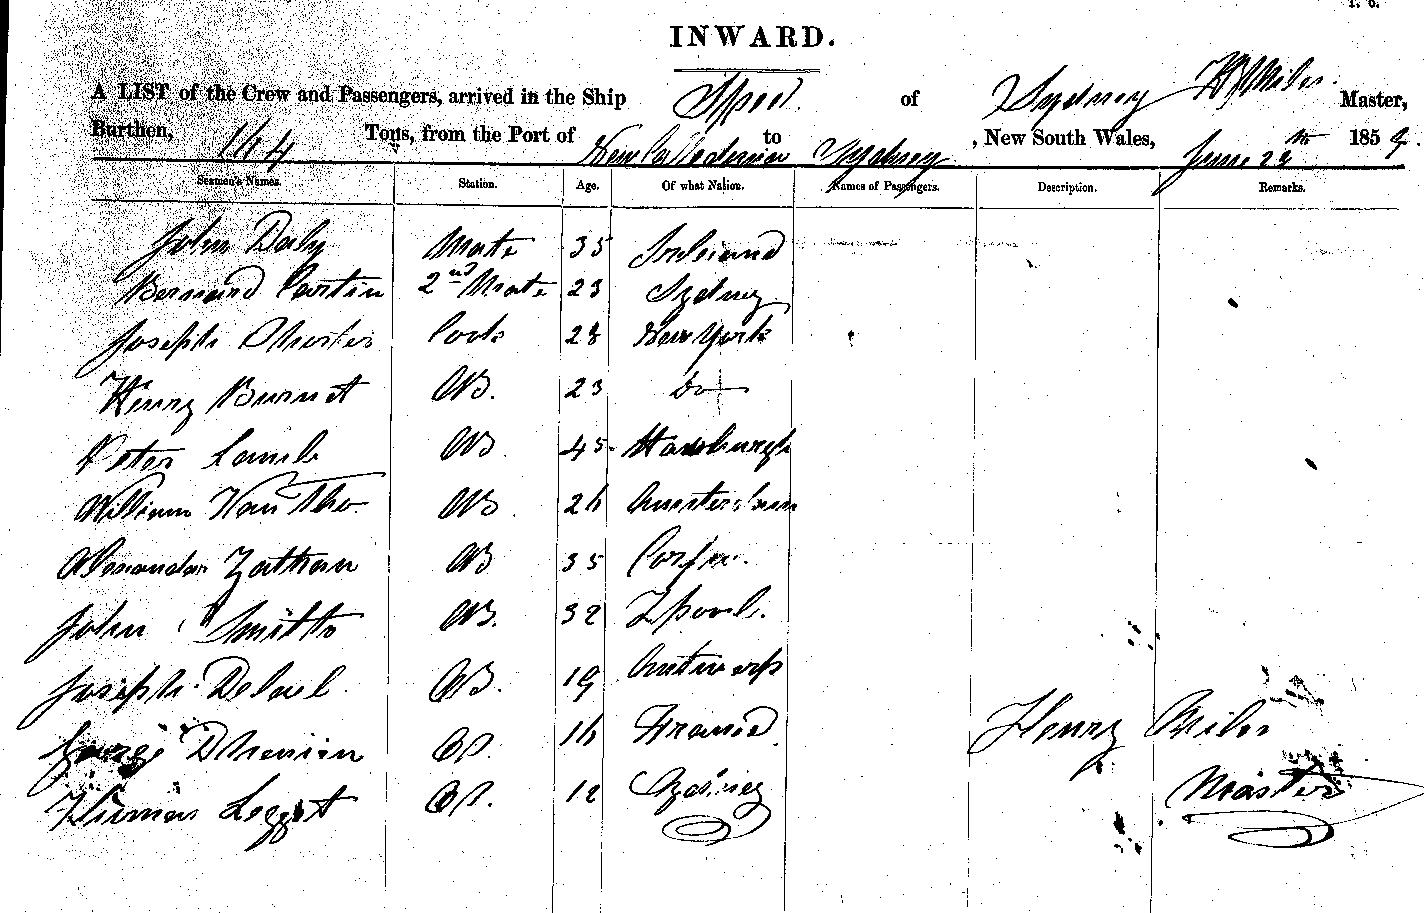 INWARD.
A LIST of the Crew and Passengers, arrived in the Ship Speed. of Sydney H Miles Master,
Burthen, 164 Tons, from the Port of New Caledonia to Sydney, New South Wales, June 22 1859.
Seamen's Names. Station. Age. Of what Nation. Names of Passengers. Description. Remarks.
John Daly Mate 35 Ireland
Bernard 2nd Mate 23 Sydney
Joseph Cook 28 New York
Henry Burnet AB. 23 Do
Peter Lamb AB 45 Hamburgh
William AB 26 Amsterdam
Alexander AB 35 Corfu.
John Smith AB. 32 Lpool.
Joseph AB. 19 Antwerp
George 16 France
Henry Miles
Thomas Leggat 12 Sydney
Master